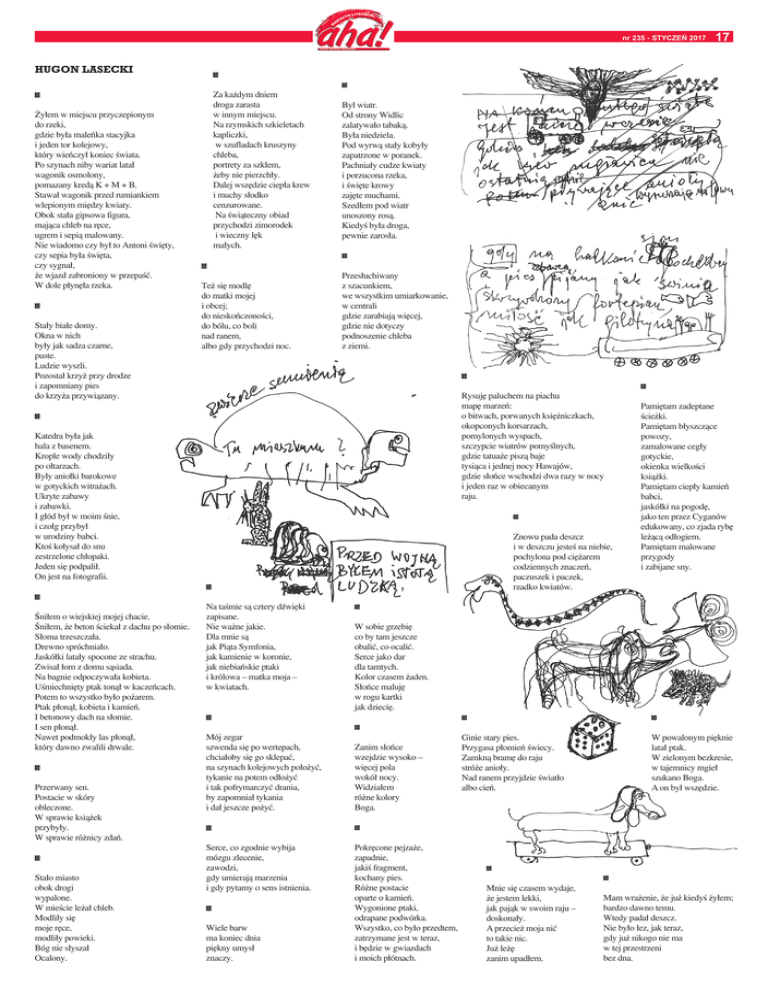 aha!
nr 235 - STYCZEŃ 2017 17
HUGON LASECKI
Żyłem w miejscu przyczepionym
do rzeki,
gdzie była maleńka stacyjka
i jeden tor kolejowy,
który wieńczył koniec świata.
Po szynach niby wariat latał
wagonik osmolony,
pomazany kredą K + M + B.
Stawał wagonik przed rumiankiem
wlepionym między kwiaty.
Obok stała gipsowa figura,
mająca chleb na ręce,
ugrem i sepią malowany.
Nie wiadomo czy był to Antoni święty,
czy sepia była święta,
czy sygnał,
że wjazd zabroniony w przepaść.
W dole płynęła rzeka.
Stały białe domy.
Okna w nich
były jak sadza czarne,
puste.
Ludzie wyszli.
Pozostał krzyż przy drodze
i zapomniany pies
do krzyża przywiązany.
Katedra była jak
hala z basenem.
Krople wody chodziły
po ołtarzach.
Były aniołki barokowe
w gotyckich witrażach.
Ukryte zabawy
i zabawki.
I głód był w moim śnie,
i czołg przybył
w urodziny babci.
Ktoś kołysał do snu
zestrzelone chłopaki.
Jeden się podpalił.
On jest na fotografii.
Śniłem o wiejskiej mojej chacie.
Śniłem, że beton ściekał z dachu po słomie.
Słoma trzeszczała.
Drewno spróchniało.
Jaskółki latały spocone ze strachu.
Zwisał łom z domu sąsiada.
Na bagnie odpoczywała kobieta.
Uśmiechnięty ptak tonął w kaczeńcach.
Potem to wszystko było pożarem.
Ptak płonął, kobieta i kamień.
I betonowy dach na słomie.
I sen płonął.
Nawet podmokły las płonął,
który dawno zwalili drwale.
Przerwany sen.
Postacie w skóry
obleczone.
W sprawie książek
przybyły.
W sprawie różnicy zdań.
Stało miasto
obok drogi
wypalone.
W mieście leżał chleb.
Modliły się
moje ręce,
modliły powieki.
Bóg nie słyszał
Ocalony.
Za każdym dniem
droga zarasta
w innym miejscu.
Na rzymskich szkieletach
kapliczki,
w szufladach kruszyny
chleba,
portrety za szkłem,
żeby nie pierzchły.
Dalej wszędzie ciepła krew
i muchy słodko
cenzurowane.
Na świąteczny obiad
przychodzi zimorodek
i wieczny lęk
małych.
Też się modlę
do matki mojej
i obcej;
do nieskończoności,
do bólu, co boli
nad ranem,
albo gdy przychodzi noc.
Był wiatr.
Od strony Widlic
zalatywało tabaką.
Była niedziela.
Pod wyrwą stały kobyły
zapatrzone w poranek.
Pachniały cudze kwiaty
i porzucona rzeka,
i święte krowy
zajęte muchami.
Szedłem pod wiatr
unoszony rosą.
Kiedyś była droga,
pewnie zarosła.
Przesłuchiwany
z szacunkiem,
we wszystkim umiarkowanie,
w centrali
gdzie zarabiają więcej,
gdzie nie dotyczy
podnoszenie chleba
z ziemi.
Tu mieszkam ?
PRZED WOJNĄ
BYŁEM ISTOTĄ
LUDZKĄ.
Rysuję paluchem na piachu
mapę marzeń:
o bitwach, porwanych księżniczkach,
okopconych korsarzach,
pomylonych wyspach,
szczypcie wiatrów pomyślnych,
gdzie tatuaże piszą baje
tysiąca i jednej nocy Hawajów,
gdzie słońce wschodzi dwa razy w nocy
i jeden raz w obiecanym
raju.
Znowu pada deszcz
i w deszczu jesteś na niebie,
pochylona pod ciężarem
codziennych znaczeń,
paczuszek i paczek,
rzadko kwiatów.
Pamiętam zadeptane
ścieżki.
Pamiętam błyszczące
powozy,
zamalowane cegły
gotyckie,
okienka wielkości
książki.
Pamiętam ciepły kamień
babci,
jaskółki na pogodę,
jako ten przez Cyganów
edukowany, co zjada rybę
leżącą odłogiem.
Pamiętam malowane
przygody
i zabijane sny.
Na taśmie są cztery dźwięki
zapisane.
Nie ważne jakie.
Dla mnie są
jak Piąta Symfonia,
jak kamienie w koronie,
jak niebiańskie ptaki
i królowa – matka moja –
w kwiatach.
Mój zegar
szwenda się po wertepach,
chciałoby się go sklepać,
na szynach kolejowych położyć,
tykanie na potem odłożyć
i tak pofrymarczyć drania,
by zapomniał tykania
i dał jeszcze pożyć.
Serce, co zgodnie wybija
mózgu zlecenie,
zawodzi,
gdy umierają marzenia
i gdy pytamy o sens istnienia.
Wiele barw
ma koniec dnia
piękny umysł
znaczy.
W sobie grzebię
co by tam jeszcze
obalić, co ocalić.
Serce jako dar
dla tamtych.
Kolor czasem żaden.
Słońce maluję
w rogu kartki
jak dziecię.
Zanim słońce
wzejdzie wysoko –
więcej pola
wokół nocy.
Widziałem
różne kolory
Boga.
Pokręcone pejzaże,
zapadnie,
jakiś fragment,
kochany pies.
Różne postacie
oparte o kamień.
Wygonione ptaki,
odrapane podwórka.
Wszystko, co było przedtem,
zatrzymane jest w teraz,
i będzie w gwiazdach
i moich płótnach.
Ginie stary pies.
Przygasa płomień świecy.
Zamkną bramę do raju
stróże anioły.
Nad ranem przyjdzie światło
albo cień.
W powalonym pięknie
latał ptak.
W zielonym bezkresie,
w tajemnicy mgieł
szukano Boga.
A on był wszędzie.
Mnie się czasem wydaje,
że jestem lekki,
jak pająk w swoim raju –
doskonały.
A przecież moja nić
to takie nic.
Już leżę
zanim upadłem.
Mam wrażenie, że już kiedyś żyłem;
bardzo dawno temu.
Wtedy padał deszcz.
Nie było łez, jak teraz,
gdy już nikogo nie ma
w tej przestrzeni
bez dna.